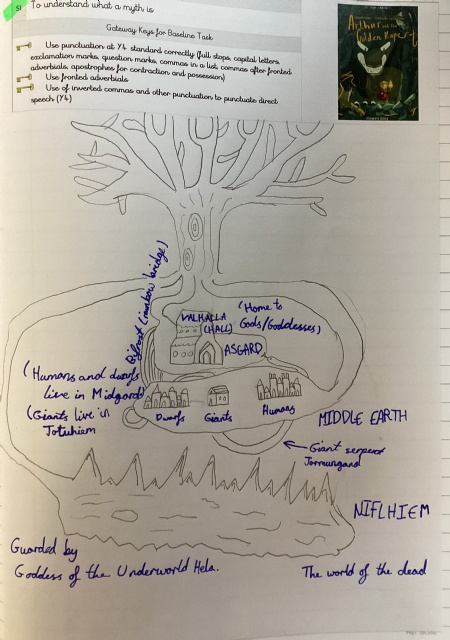 SI
To understand what a myth is
Gateway Keys for Baseline Task
Use punctuation at Y4 standard correctly (full stops, capital letters,
exclamation marks, question marks, commas in a list, commas after fronted
adverbials, apostrophes for contraction and possession)
Use fronted adverbials
Use of inverted commas and other punctuation to punctuate direct
speech (Y4)
Arthur and the
Golden Rope
Bifrost (rainbow bridge)
VALHALLA
(HALL)
(Home to
Gods/Goddesses)
ASGARD
(Humans and dwarfs
live in Midgard)
(Giants live in
Jotuhiem
Dwarfs
Giants
Humans
MIDDLE EARTH
Giant serpent
Jormungand
NIFLHIEM
Guarded by
Goddess of the Underworld Hela.
The world of the dead